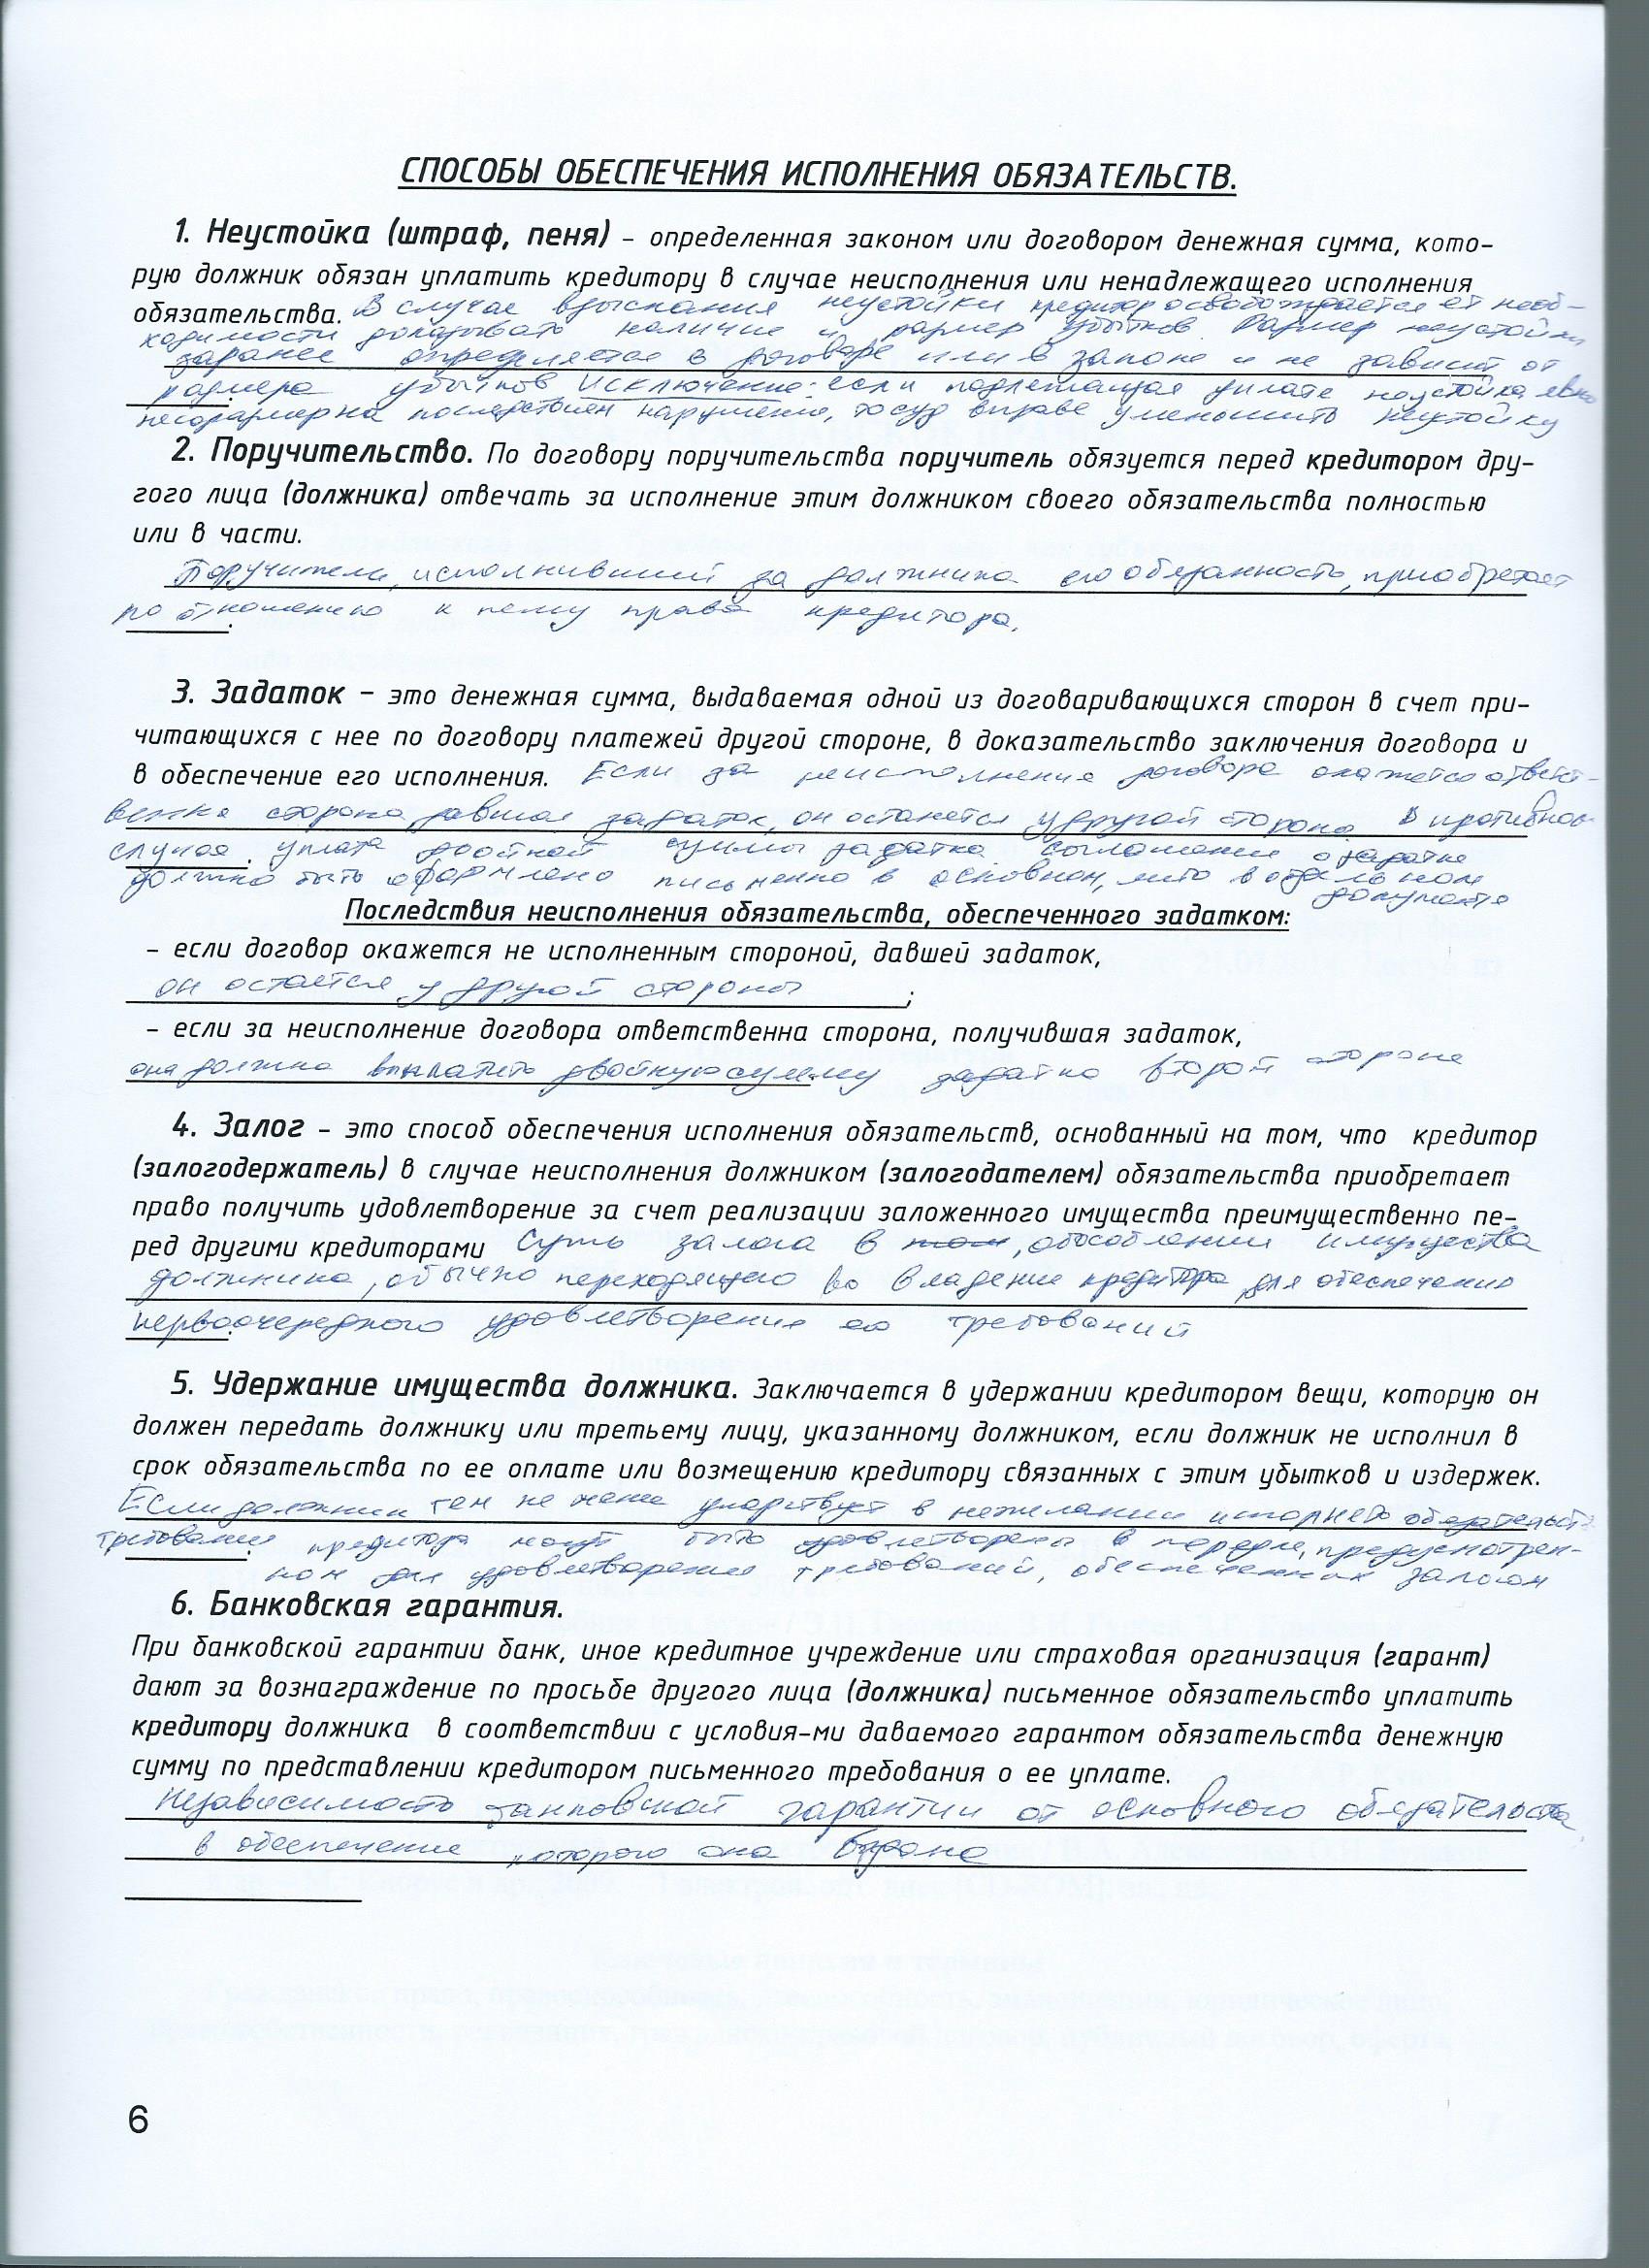 СПОСОБЫ ОБЕСПЕЧЕНИЯ ИСПОЛНЕНИЯ ОБЯЗАТЕЛЬСТВ.
1. Неустойка (штраф, пеня) – определенная законом или договором денежная сумма, кото-
рую должник обязан уплатить кредитору в случае неисполнения или ненадлежащего исполнения
обязательства. В случае взыскания неустойки кредитор освобождается от необ-
ходимости доказывать наличие и размер убытков. Размер неустойки
заранее определяется в договоре или в законе и не зависит от
размера убытков Исключение: если подлежащая уплате неустойка явно
несоразмерна последствиям нарушения, то суд вправе уменьшить неустойку
2. Поручительство. По договору поручительства поручитель обязуется перед кредитором дру-
гого лица (должника) отвечать за исполнение этим должником своего обязательства полностью
или в части.
Поручитель, исполнивший за должника его обязанность, приобретает
по отношению к нему права кредитора.
3. Задаток – это денежная сумма, выдаваемая одной из договаривающихся сторон в счет при-
читающихся с нее по договору платежей другой стороне, в доказательство заключения договора и
в обеспечение его исполнения. Если за неисполнение договора окажется ответст-
венна сторона, давшая задаток, он останется у другой стороны. В противном
случае, уплата двойной суммы задатка. Соглашение о задатке
должно быть оформлено письменно в основном, либо в отдельном
документе
Последствия неисполнения обязательства, обеспеченного задатком:
– если договор окажется не исполненным стороной, давшей задаток,
он остается у другой стороны ;
– если за неисполнение договора ответственна сторона, получившая задаток,
она должна выплатить двойную сумму задатка второй стороне
4. Залог – это способ обеспечения исполнения обязательств, основанный на том, что кредитор
(залогодержатель) в случае неисполнения должником (залогодателем) обязательства приобретает
право получить удовлетворение за счет реализации заложенного имущества преимущественно пе-
ред другими кредиторами Суть залога в том, обособлении имущества
должника, обычно переходящего во владение кредитора для обеспечения
первоочередного удовлетворения его требований
5. Удержание имущества должника. Заключается в удержании кредитором вещи, которую он
должен передать должнику или третьему лицу, указанному должником, если должник не исполнил в
срок обязательства по ее оплате или возмещению кредитору связанных с этим убытков и издержек.
Если должник тем не менее упорствует в нежелании исполнять обязательств
требования кредитора могут быть удовлетворены в порядке, предусмотрен-
ном для удовлетворения требований, обеспеченных залогом
6. Банковская гарантия.
При банковской гарантии банк, иное кредитное учреждение или страховая организация (гарант)
дают за вознаграждение по просьбе другого лица (должника) письменное обязательство уплатить
кредитору должника в соответствии с условия-ми даваемого гарантом обязательства денежную
сумму по представлении кредитором письменного требования о ее уплате.
Независимость банковской гарантии от основного обязательства,
в обеспечение которого она
6